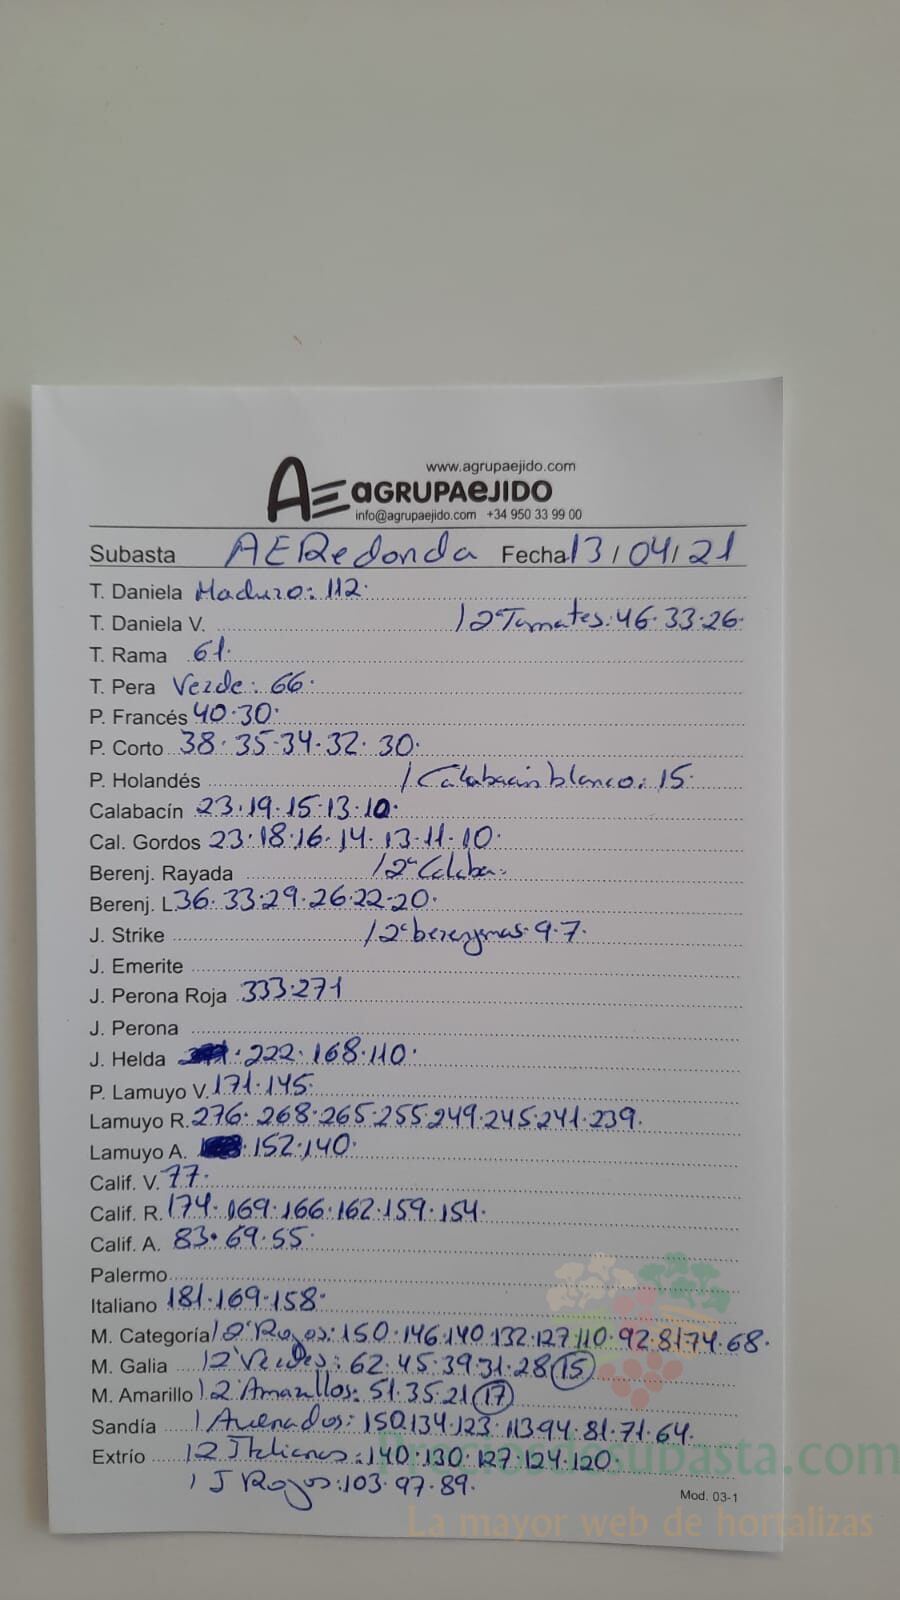 www.agrupaejido.com
AE aGRUPAeJIDO
info@agrupaejido.com +34 950 33 99 00
Subasta AERedonda Fecha 13/04/21
T. Daniela Maduro: 112.
T. Daniela V. /2ªTomates: 46.33.26.
T. Rama 61.
T. Pera Verde: 66.
P. Francés 40.30.
P. Corto 38.35.34.32.30.
P. Holandés /Calabacín blanco: 15.
Calabacín 23.19.15.13.10.
Cal. Gordos 23.18.16.14.13.11.10.
Berenj. Rayada /2ª Calaba.
Berenj. L 36.33.29.26.22-20.
J. Strike /2ª berenjenas 9.7.
J. Emerite
J. Perona Roja 333.271
J. Perona
J. Helda . 222.168.110.
P. Lamuyo V. 171.145.
Lamuyo R. 276.268.265.255.249.245.241.239.
Lamuyo A. . 152.140.
Calif. V. 77.
Calif. R. 174.169.166.162.159.154.
Calif. A. 83.69.55.
Palermo
Italiano 181.169.158.
M. Categoría /2ª Rojos: 150.146.140.132.127.110.92.81.74.68.
M. Galia /2ª Verdes: 62.45.39.31.28 (15)
M. Amarillo /2 Amarillos: 51.35.21 (17)
Sandía /Asurados: 150.134.123.113.94.81.71.64.
Extrío /2 Italianos: 140.130.127.124.120.
/J Rojos: 103.97.89.
Mod. 03-1
Preciosdesubasta.com
La mayor web de hortalizas